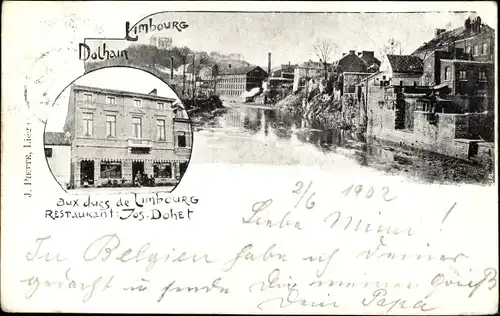 Limbourg
Dolhain
J. PIETTE, LIÈGE
aux ducs de LimbourG
RESTAURANT: Jos. DoheT
2/6 1902
Liebe Mimi!
In Belgien habe ich deiner
gedacht u sende Dir meinen Gruß
Dein Papa